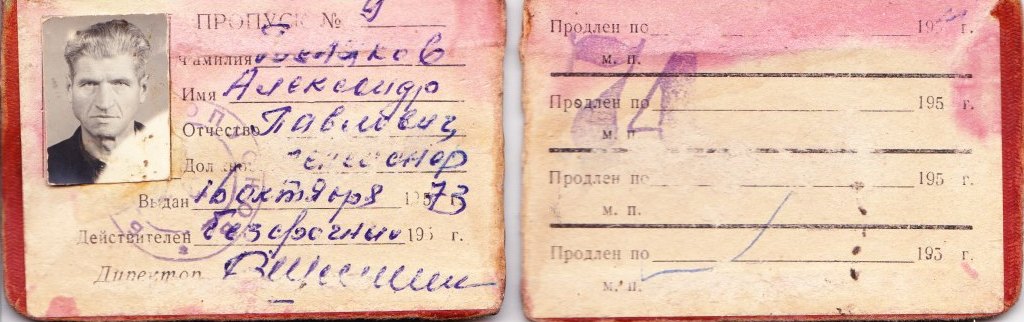 ПРОПУСК № 9
Фамилия
Имя Александр
Отчество Павлович
Должно. пенсионер
Выдан 16 октября 195 73
Действителен Безсрочный 195 г.
Директор
Продлен по 195 г.
м. п.
Продлен по 195 г.
м. п.
Продлен по 195 г.
м. п.
Продлен по 195 г.
м. п.